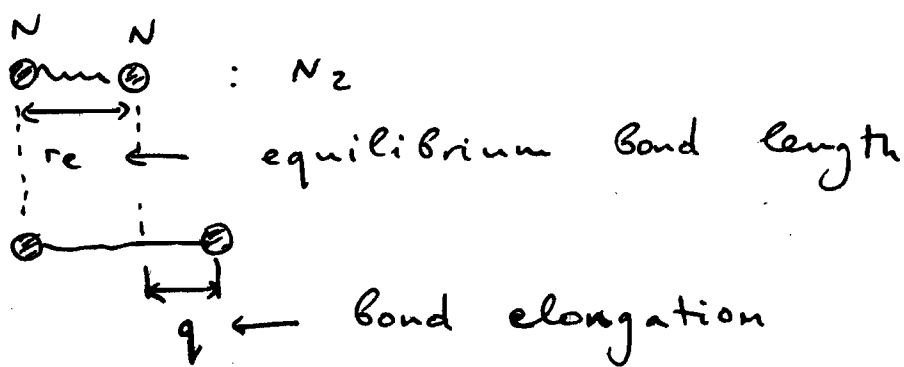 N N
: N2
re ← equilibrium bond length
q ← bond elongation